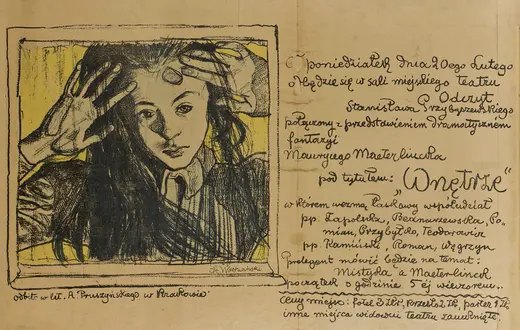 W poniedziałek dnia 20ego Lutego
odbędzie się w sali miejskiego teatru
Odczyt
Stanisława Przybyszewskiego
połączony z przedstawieniem dramatycznem
fantazyi
Maurycego Maeterlincka
pod tytułem: „Wnętrze"
w którem wezmą łaskawy współudział
pp. Zapolska, Bednarzewska, Po-
mian, Przybyłko, Teodorowicz
pp. Kamiński, Roman, Węgrzyn
Prelegent mówić będzie na temat:
Mistyka a Maeterlinck
początek o godzinie 5ej wieczorem.
Ceny miejsc: fotel 3 złr, krzesło 2 złr, parter 1 złr
inne miejsca widowni teatru zamknięte
St. Wyspiański
odbito w lit. A. Pruszyńskiego w Krakowie